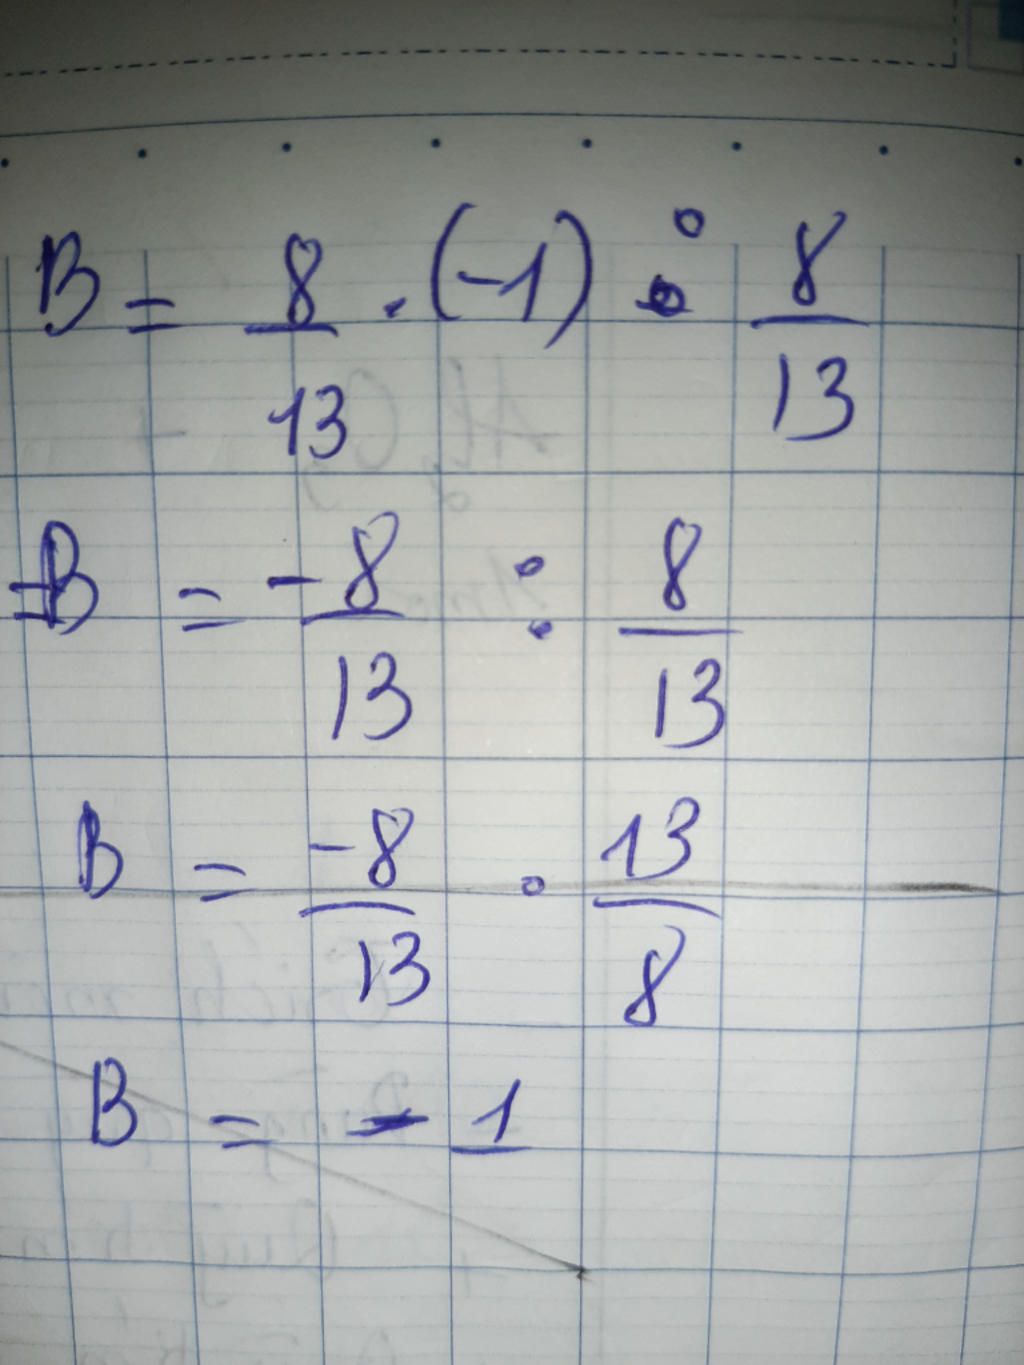 B = 8/13 . (-1) : 8/13
B = -8/13 : 8/13
B = -8/13 . 13/8
B = -1